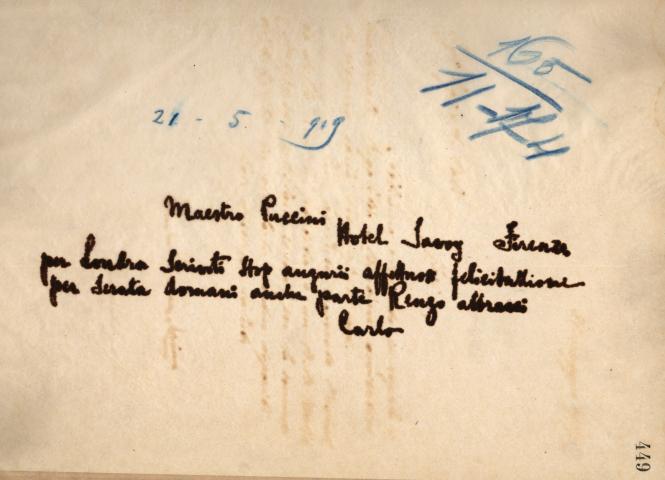 165
11-
21 - 5 - 919
Maestro Puccini
Hotel Savoy Firenze
per Londra Scrivoti Stop augurii affettuosi felicitattione
per Serata domani anche parte Renzo abbracci
Carlo
449